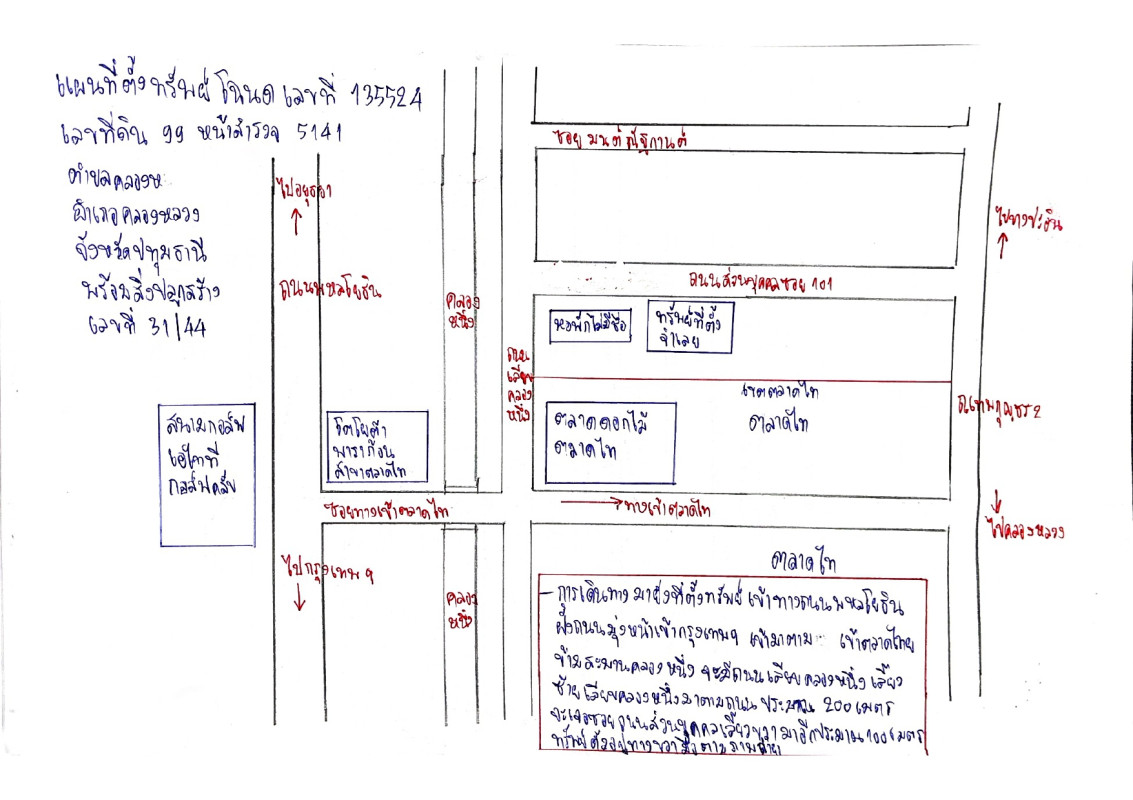 แผนที่ตั้งทรัพย์ โฉนด เลขที่ 135524
เลขที่ดิน 99 หน้าสำรวจ 5141
ตำบลคลองห
อำเภอคลองหลวง
จังหวัดปทุมธานี
พร้อมสิ่งปลูกสร้าง
เลขที่ 31/44
ไปอยุธยา
ถนนพหลโยธิน
คลอง
หนึ่ง
ซอย มนต์ณัฐกานต์
ไปบางปะอิน
ถนนส่วนบุคคลซอย 101
หอพักไม่มีชื่อ
ทรัพย์ที่ตั้ง
จำเลย
ถนน
เลียบ
คลอง
หนึ่ง
เขตตลาดไท
ตลาดไท
ถ.เทพกุญชร 2
ตลาดดอกไม้
ตลาดไท
สนามกอล์ฟ
กอล์ฟคลับ
โตโยต้า
พาราก้อน
สาขาตลาดไท
ซอยทางเข้าตลาดไท
ทางเข้าตลาดไท
ไปคลองหลวง
ไปกรุงเทพฯ
คลอง
หนึ่ง
ตลาดไท
- การเดินทางมายังที่ตั้งทรัพย์ เข้าทางถนนพหลโยธิน
ฝั่งถนนมุ่งหน้าเข้ากรุงเทพฯ เข้ามาตาม เข้าตลาดไทย
ข้ามสะพานคลองหนึ่ง จะมีถนนเลียบคลองหนึ่ง เลี้ยว
ซ้ายเลียบคลองหนึ่งมาตามถนน ประมาณ 200 เมตร
จะเจอซอยถนนส่วนบุคคลเลี้ยวขวามาอีกประมาณ 100 เมตร
ทรัพย์ตั้งอยู่ทางขวามือตามภาพถ่าย